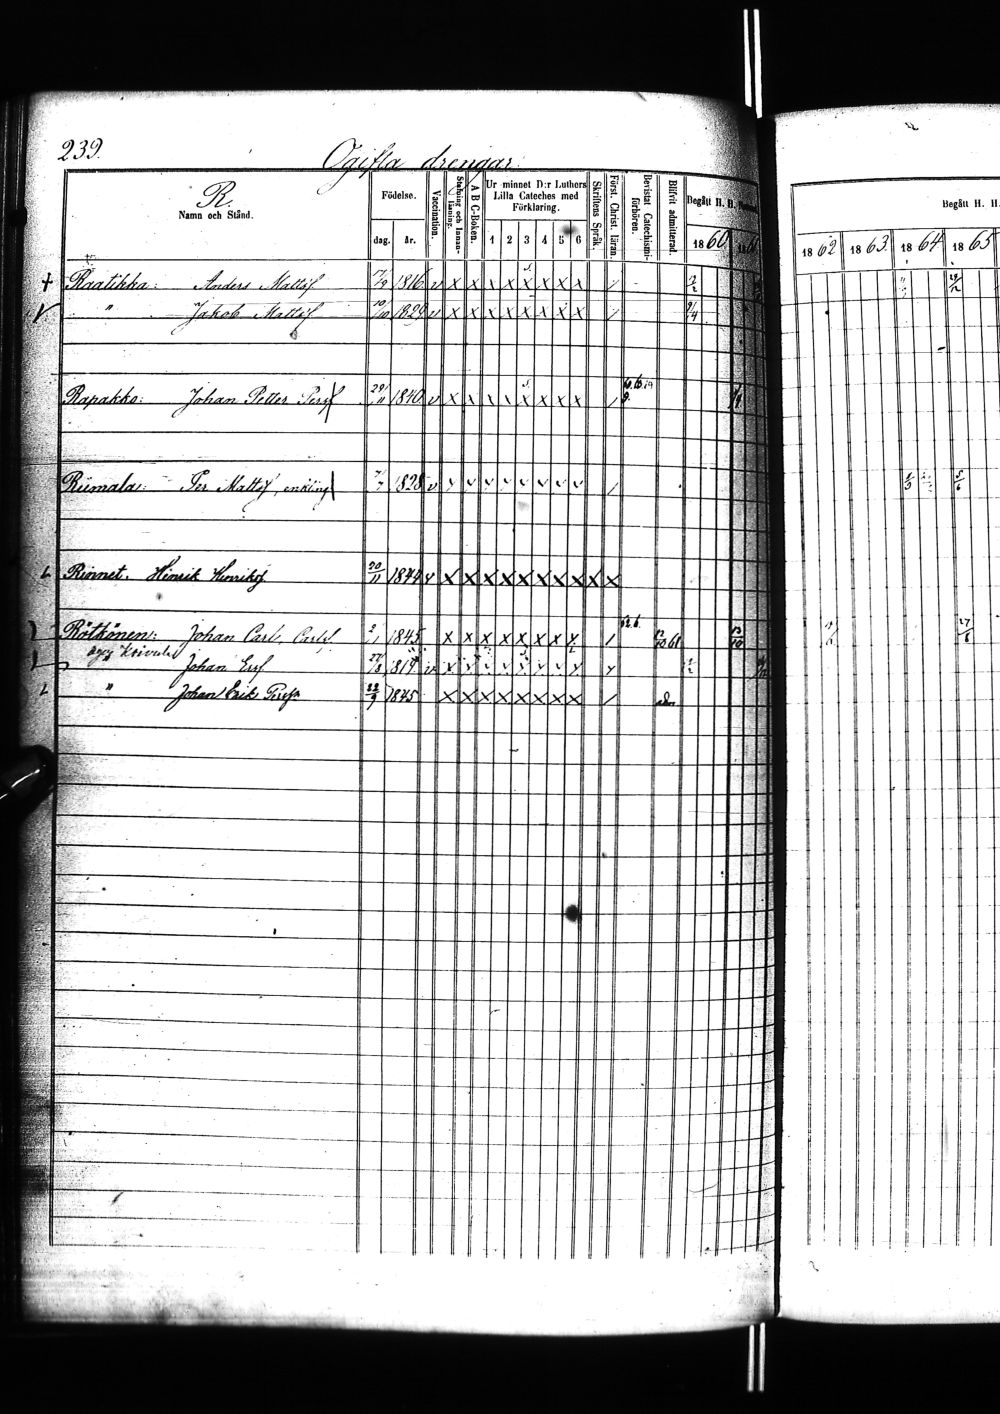 239.
Ogifta drengar.
R.
Namn och Stånd.
Födelse.
dag. år.
Vaccination.
Stafning och Innan-läsning.
A B C-Boken.
Ur minnet D:r Luthers Lilla Cateches med Förklaring.
1 2 3 4 5 6
Skriftens Språk.
Först. Christ. läran.
Bevistat Catechismi-förhören.
Blifvit admitterad.
Begått H. H.
1860
Begått H. H.
1862 1863. 1864 1865
+ Raatikka: Anders Mattsf 1816 v x x x x x x x x /
" Jakob Mattsf 10/10 1829 v x x x x x x x x / 9/4
Rapakko: Johan Petter Persf 29/11 1840 v x x x x x x x x /
Riimala: Per Mattsf, enkling 7/7 1828 v v v v v v v v v / 5/6
L Rinnet. Hinrik Henriksf 20/11 1844 v x x x x x x x x x x
Rötkönen: Johan Carl, Carlsf 2/1 1845 x x x x x x x x / 13/10 61 13/10 27/6
Johan Ersf 27/8 1817 v
L " Johan Erik Persf 22/9 1845 x x x x x x x x / adm